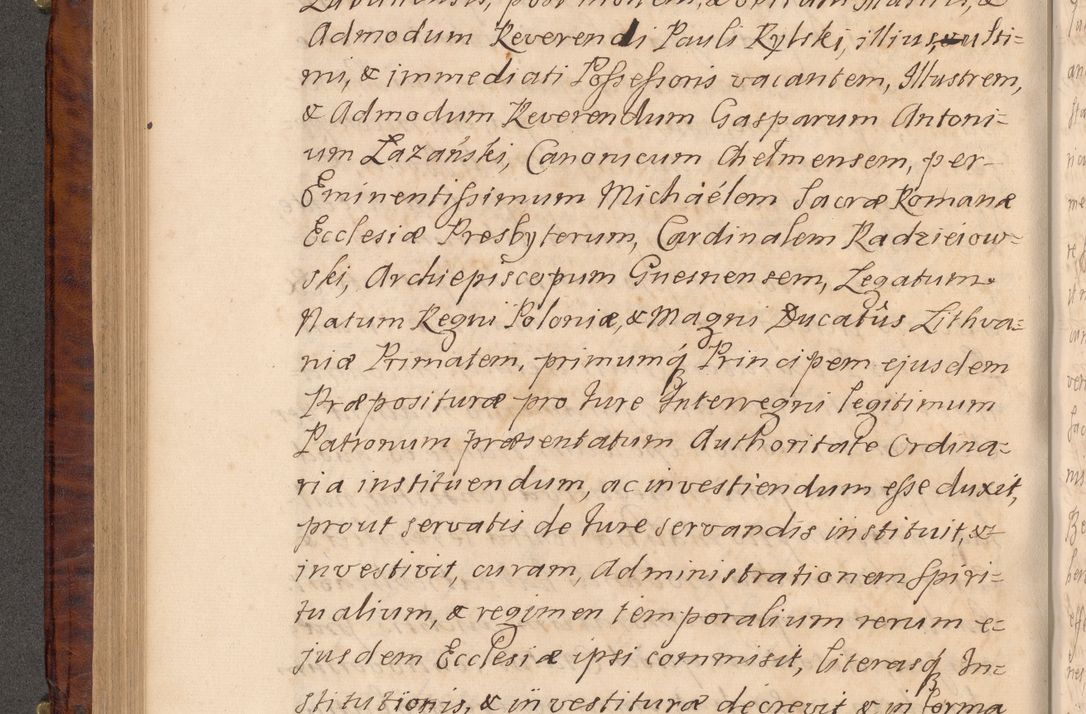 Admodum Reverendi Pauli Rylski, illius, ulti=
mi, & immediati Possessoris vacantem, Illustrem,
& Admodum Reverendum Gasparum Antoni=
um Łazański, Canonicum Chelmensem, per
Eminentissimum Michaélem Sacræ Romanæ
Ecclesiæ Presbyterum, Cardinalem Radzieiow=
ski, Archiepiscopum Gnesnensem, Legatum
Natum Regni Poloniæ, & Magni Ducatûs Lithva=
niæ Primatem, primumq Principem ejusdem
Præposituræ pro Iure Interregni legitimum
Patronum præsentatum Authoritate Ordina=
ria instituendum, ac investiendum esse duxit,
prout servatis de Iure servandis instituit, &
investivit, curam, Administrationem Spiri=
tualium, & regimen temporalium rerum e=
jusdem Ecclesiæ ipsi commisit, literasq In=
stitutionis, & investituræ decrevit & in forma